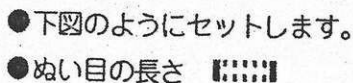 ●下図のようにセットします。
●ぬい目の長さ